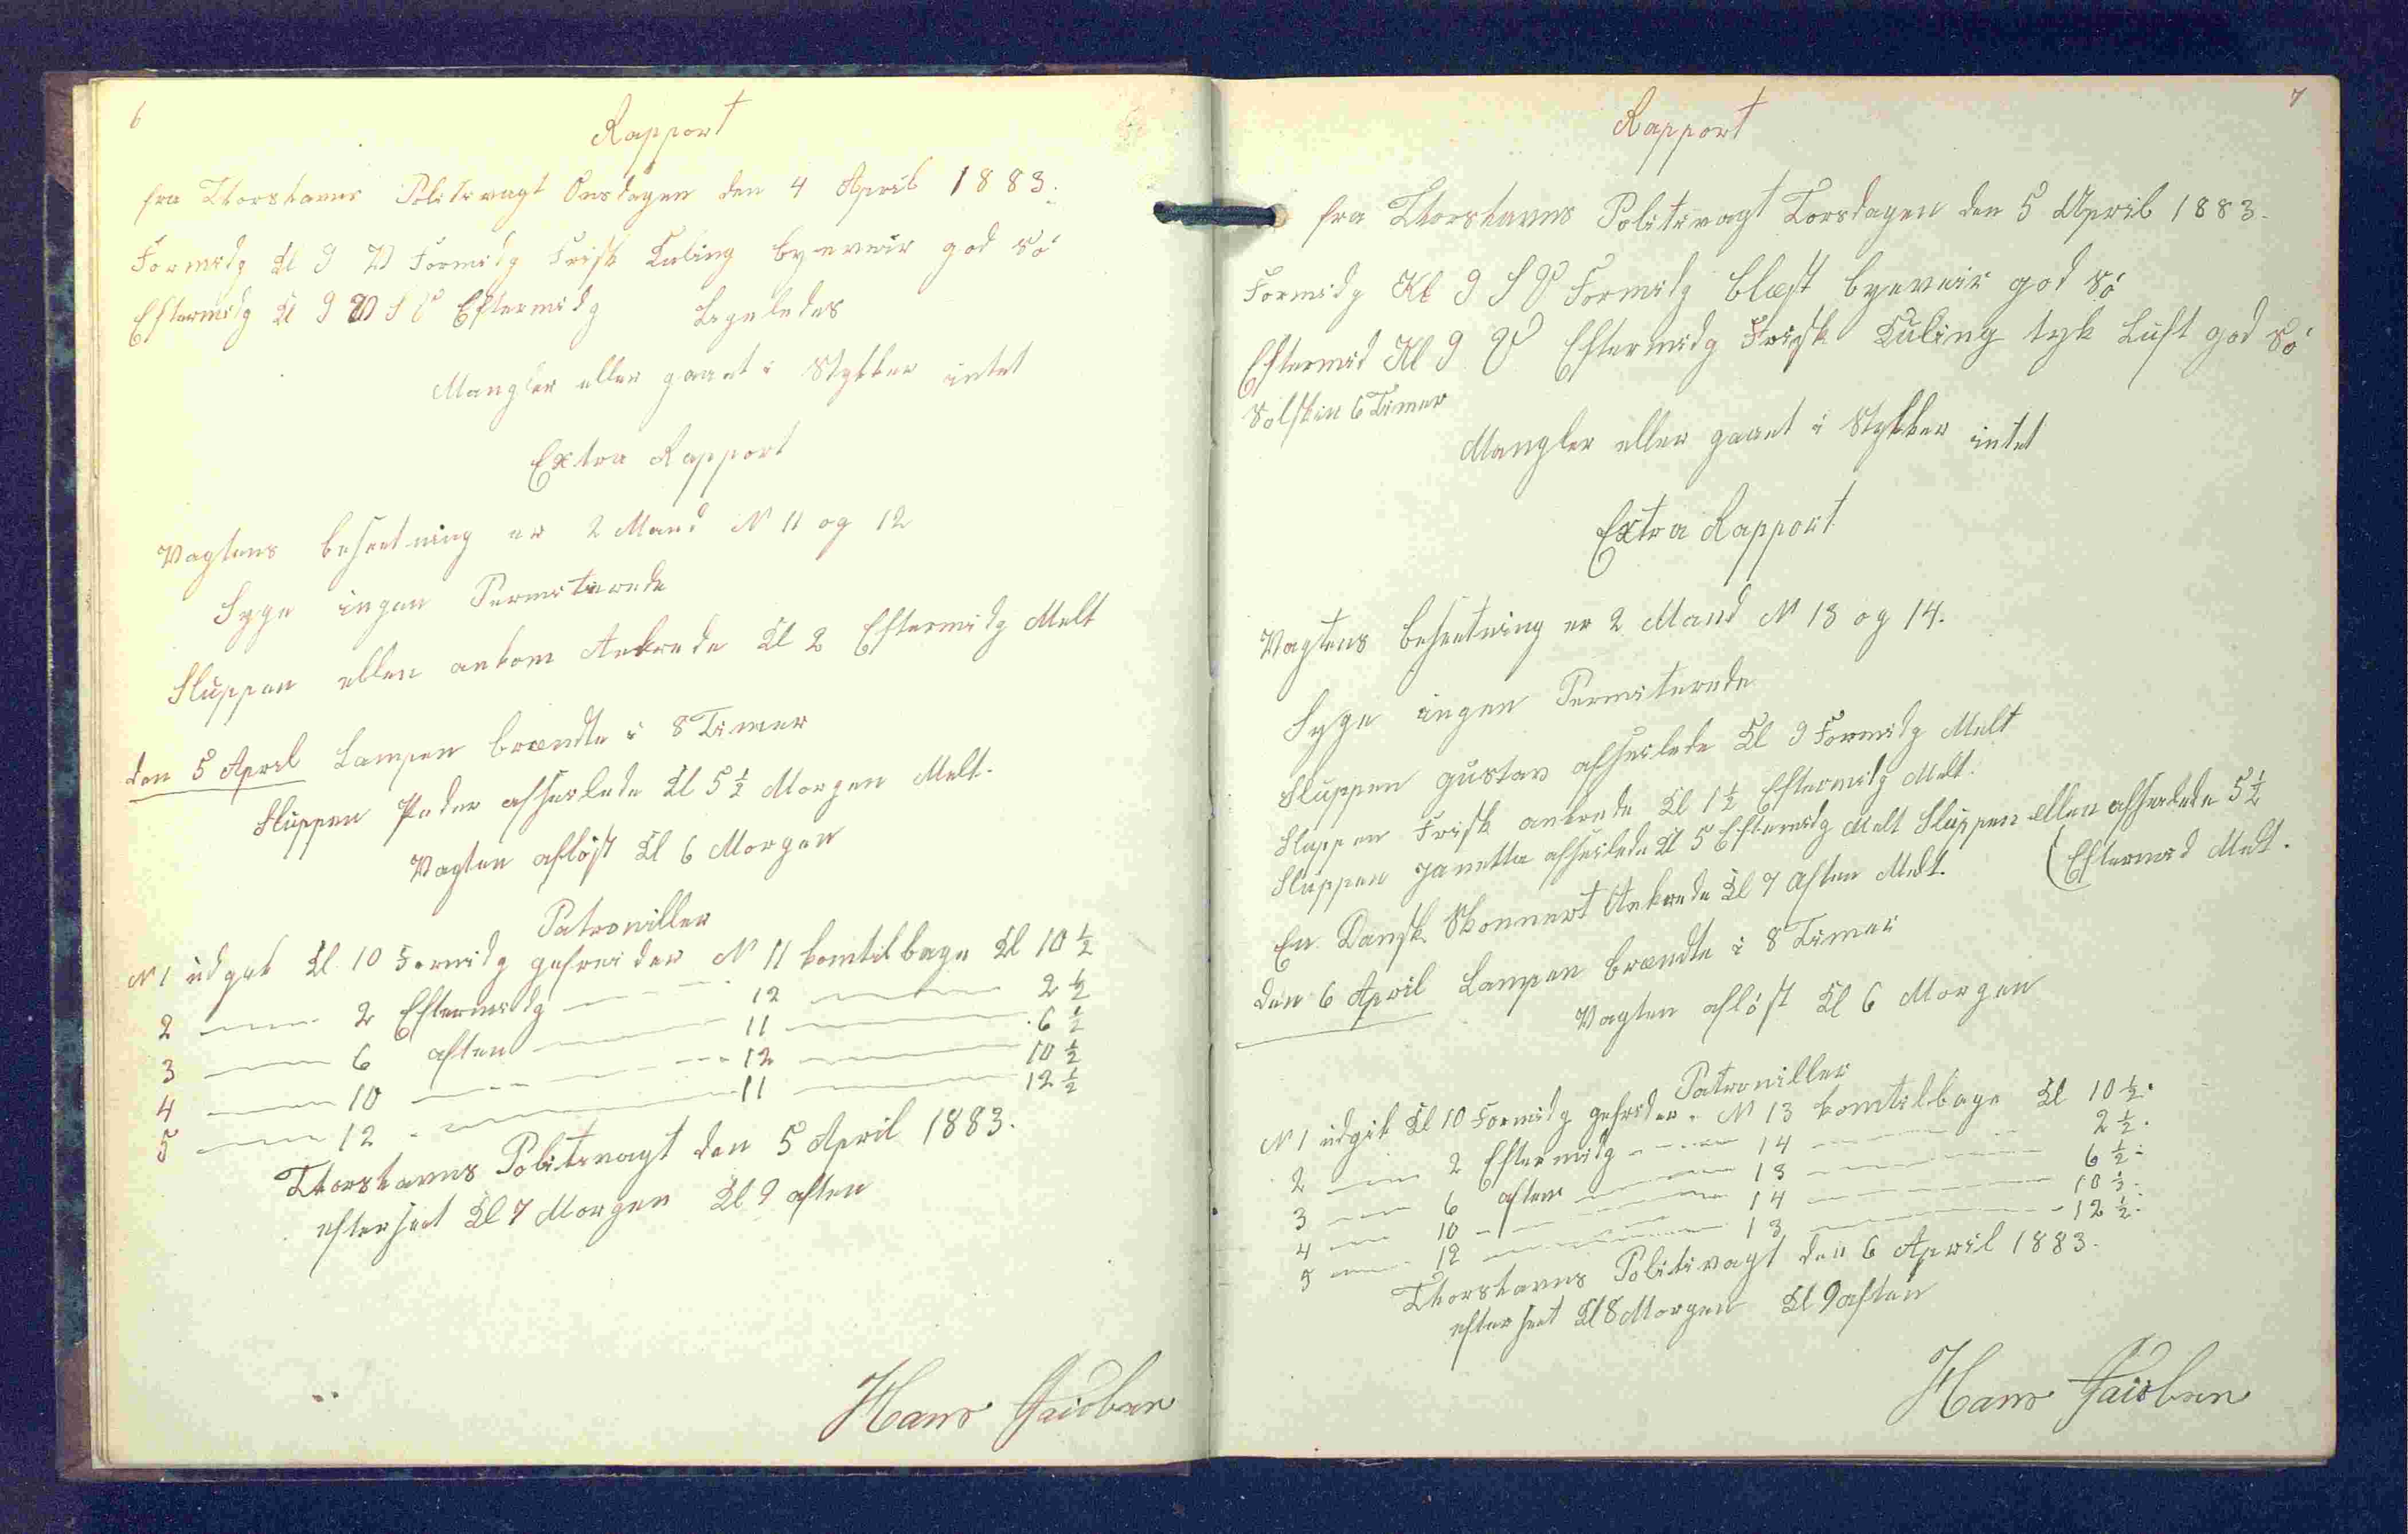 6
Rapport
fra Thorshavns Politivagt Onsdagen den 4 April 1883.
Formidg Kl 9 V Formidg Frisk Kuling byeveir god Sö
Eftermidg Kl 9 V S V Eftermidg Ligeledes
Mangler eller gaaet i Stykker intet
Extra Rapport
Vagtens besætning er 2 Mand N 11 og 12
Syge ingen Permiterede
Sluppen ellen ankom Ankrede Kl 2 Eftermidg Melt
den 5 April Lampen brændte i 8 Timer
Sluppen Peder afseilede Kl 5½ Morgen Melt.
Vagten aflöst Kl 6 Morgen
Patrouiller
N 1 udgik Kl 10 Formidg gefreider N 11 komtilbage Kl 10½
2 — 2 Eftermidg — 12 — 2½
3 — 6 aften — 11 — 6½
4 — 10 — 12 — 10½
5 — 12 — 11 — 12½
Thorshavns Politivagt den 5 April 1883.
efterseet Kl 7 Morgen Kl 9 aften
Hans Jacobsen
7
Rapport
fra Thorshavns Politivagt Torsdagen den 5 April 1883.
Formidg Kl 9 S V Formidg blæst byeveir god Sö
Eftermid Kl 9 V Eftermidg Frisk Kuling tyk Luft god Sö
Solskin 6 Timer
Mangler eller gaaet i Stykker intet
Extra Rapport
Vagtens besætning er 2 Mand N 13 og 14.
Syge ingen Permiterede
Sluppen gustav afseilede Kl 9 Formidg Melt
Sluppen Frisk ankrede Kl 1½ Eftermidg Melt.
Sluppen Janetta afseilede Kl 5 Eftermidg Melt Sluppen ellen afseilede 5½
En Dansk Skonnert Ankrede Kl 7 Aften Melt. (Eftermid Melt.
den 6 April Lampen brændte i 8 Timer
Vagten aflöst Kl 6 Morgen
Patrouiller
N 1 udgik Kl 10 Formidg gefrider. N 13 komtilbage Kl 10½.
2 — 2 Eftermidg — 14 — 2½.
3 — 6 aften — 13 — 6½.
4 — 10 — 14 — 10½.
5 — 12 — 13 — 12½.
Thorshavns Politivagt den 6 April 1883.
efterseet Kl 8 Morgen Kl 9 aften
Hans Jacobsen